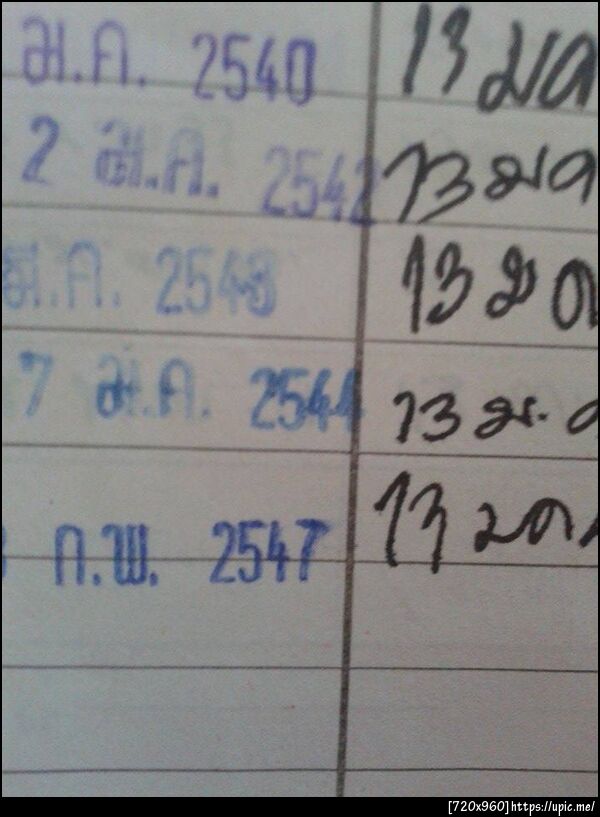 ม.ค. 2540 13 มค
2 มี.ค. 2542 13 มค
มี.ค. 2543 13 มค
7 ม.ค. 2544 13 ม.ค
ก.พ. 2547 13 มค
[720x960]https://upic.me/